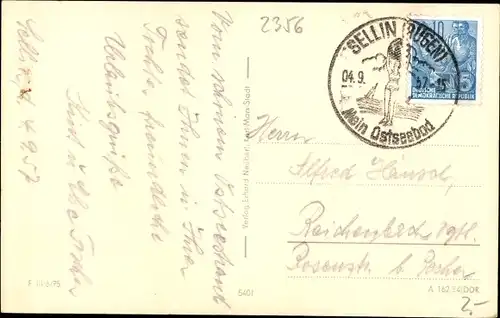 2356
SELLIN (RÜGEN)
04.9.
57-15
Mein Ostseebad
10
DEUTSCHE DEMOKRATISCHE REPUBLIK
Vom schönen Ostseestrand
sendet Ihnen u. Ihrer
Tochter freundliche
Urlaubsgrüße
Sellin, d. 4.9.57
Verlag Erhard Neubert, Karl-Marx-Stadt
Herrn
Alfred Hänsel,
Reichenbach Vgtl.
Rosenstr. b.
F III/6/75
5401
A 162 54 DDR
2,-